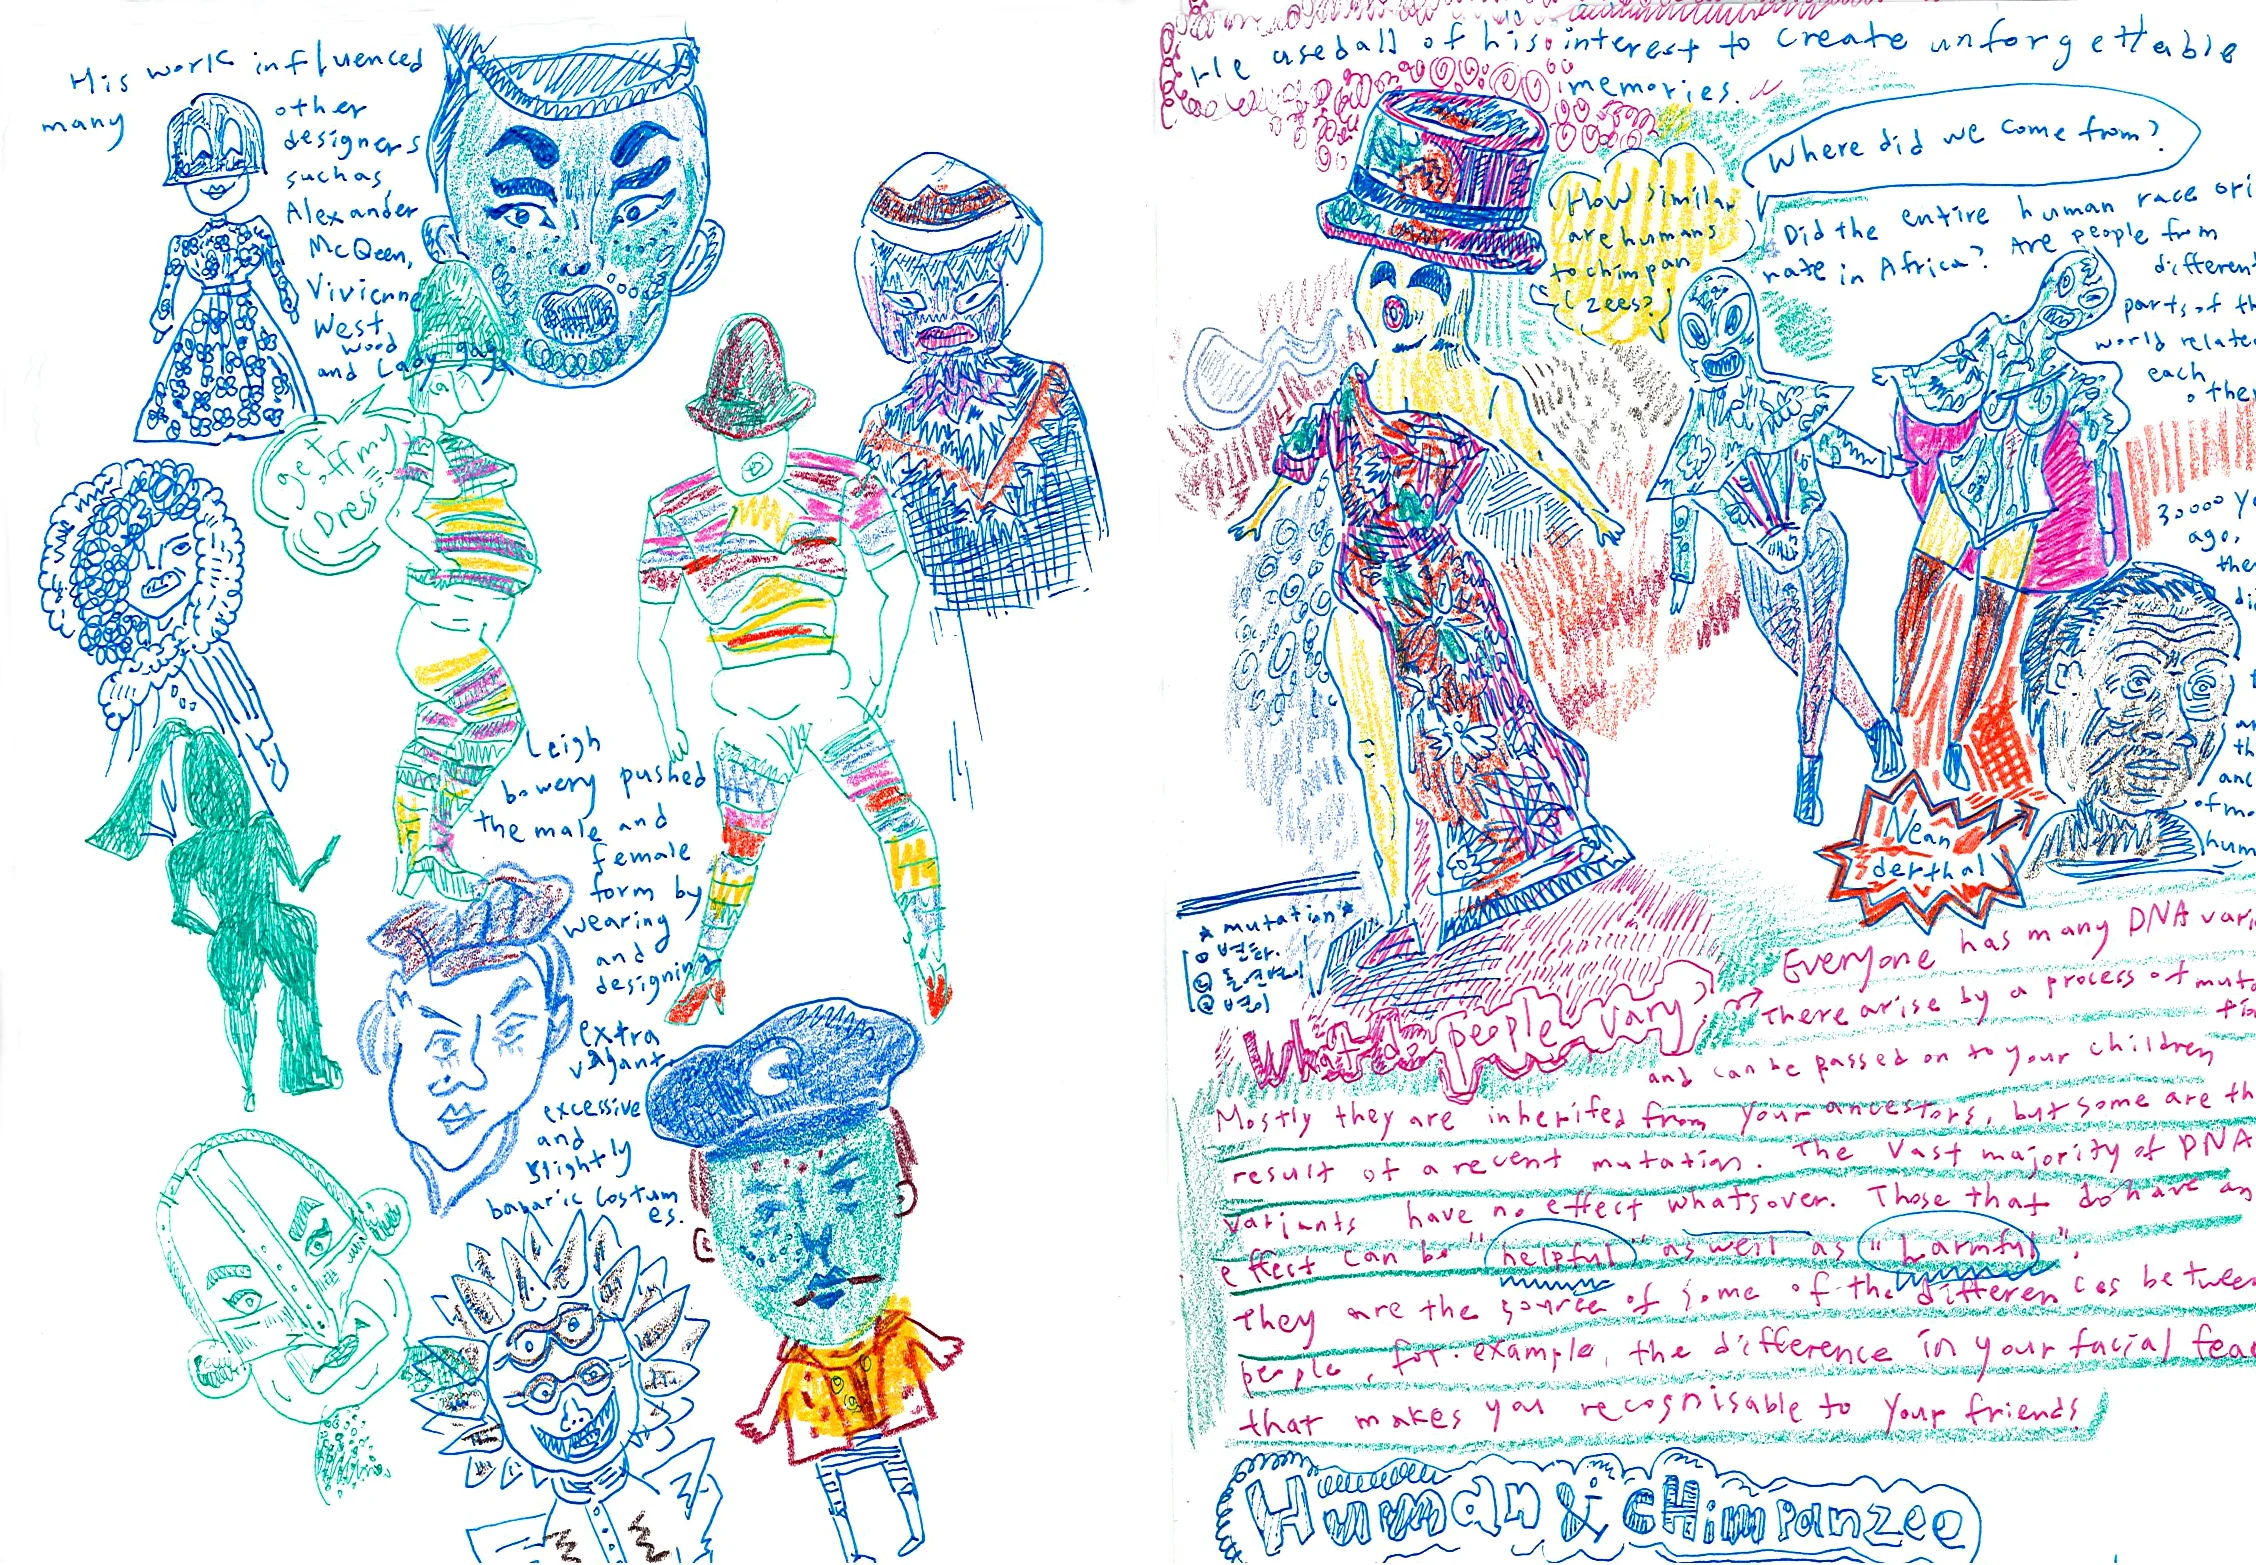 His work influenced
many other
designers
such as
Alexander
McQueen,
Vivienne
West
wood
and Lady gaga
get
off my
Dress
Leigh
bowery pushed
the male and
female
form by
wearing
and
designing
extra
vagant
excessive
and
slightly
barbaric costum
es.
He used all of his interest to create unforgettable
memories.
How similar
are humans
to chimpan
zees?
Where did we come from?
Did the entire human race ori
nate in Africa? Are people from
different
parts of th
world relate
each
other
30000 ye
ago,
the
di
an
th
anc
of mo
hum
Nean
derthal
* mutation *
① 변화.
② 돌연변이
③ 변이
What do people vary?
→ Everyone has many DNA vari
There arise by a process of muta
tio
and can be passed on to your children
Mostly they are inherited from your ancestors, but some are th
result of a recent mutation. The vast majority of DNA
variants have no effect whatsover. Those that do have an
effect can be "helpful" as well as "harmful".
They are the source of some of the differen ces between
people, for example, the difference in your facial feat
that makes you recognisable to your friends.
Human & cHimpanzee